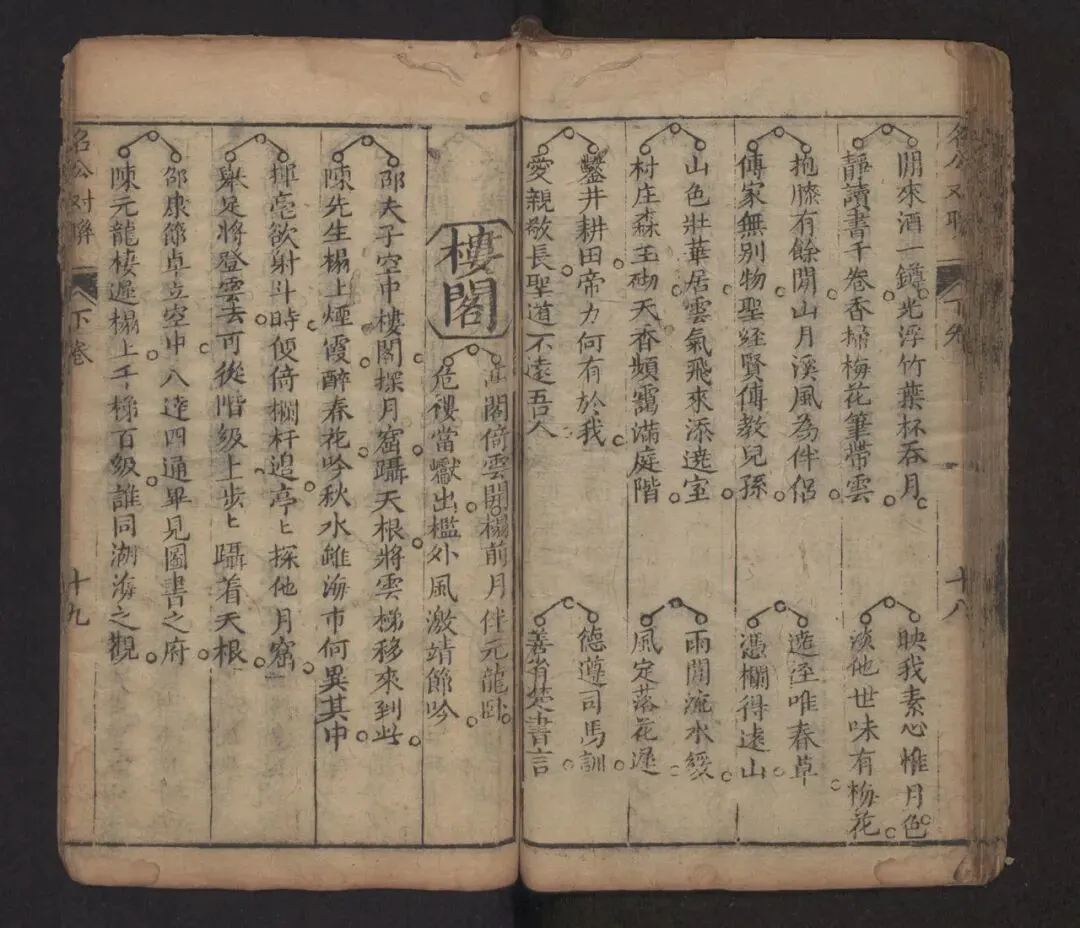 名公对聯 下卷 十八
閒來酒一鐏光浮竹葉杯吞月
靜讀書千卷香掃梅花筆帶雲
抱膝有餘閒山月溪風為伴侣
傳家無別物聖經賢傳教兒孫
山色壯華居雲氣飛來添遶室
村庄森玉砌天香頻靄滿庭階
鑿井耕田帝力何有於我
愛親敬長聖道不遠吾人
映我素心惟月色
淡他世味有梅花
遶逕唯春草
憑欄得遠山
雨聞流水緩
風定落花遲
德遵司馬訓
善省楚書言
樓閣
高閣倚雲開榻前月伴元龍臥
危樓當巘出檻外風激靖節吟
邵夫子空中樓閣探月窟躡天根將雲梯移來到此
陳先生榻上煙霞醉春花吟秋水雖海市何異其中
揮毫欲射斗時使倚欄杆追亭〻探他月窟
舉足將登雲去可從階級上步〻躡着天根
邵康節卓立空中八達四通畢見圖書之府
陳元龍棲遲榻上千梯百級誰同湖海之觀
名公对聯 下卷 十九